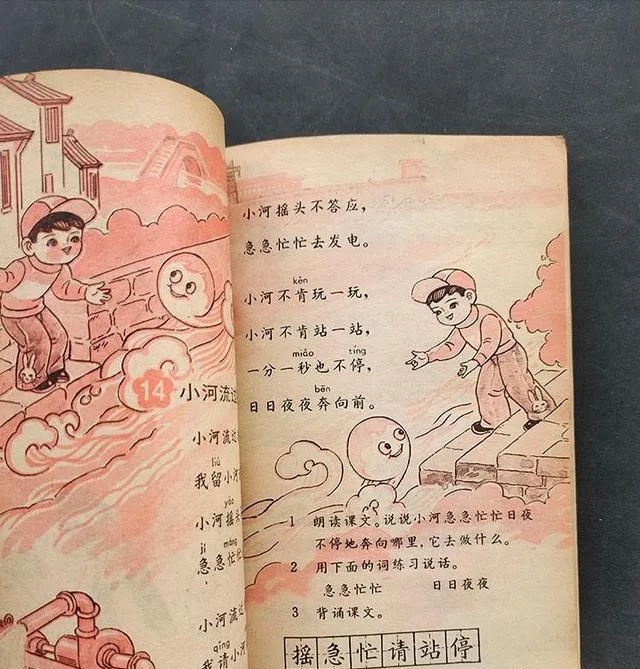 14 小河流过
小河流过
liú
我留小河
yáo
小河摇头
jí máng
急急忙忙
小河流过
qǐng
我请小河
小河摇头不答应，
急急忙忙去发电。
kěn
小河不肯玩一玩，
小河不肯站一站，
miǎo tíng
一分一秒也不停，
bēn
日日夜夜奔向前。
1 朗读课文。说说小河急急忙忙日夜
不停地奔向哪里，它去做什么。
2 用下面的词练习说话。
急急忙忙 日日夜夜
3 背诵课文。
摇急忙请站停